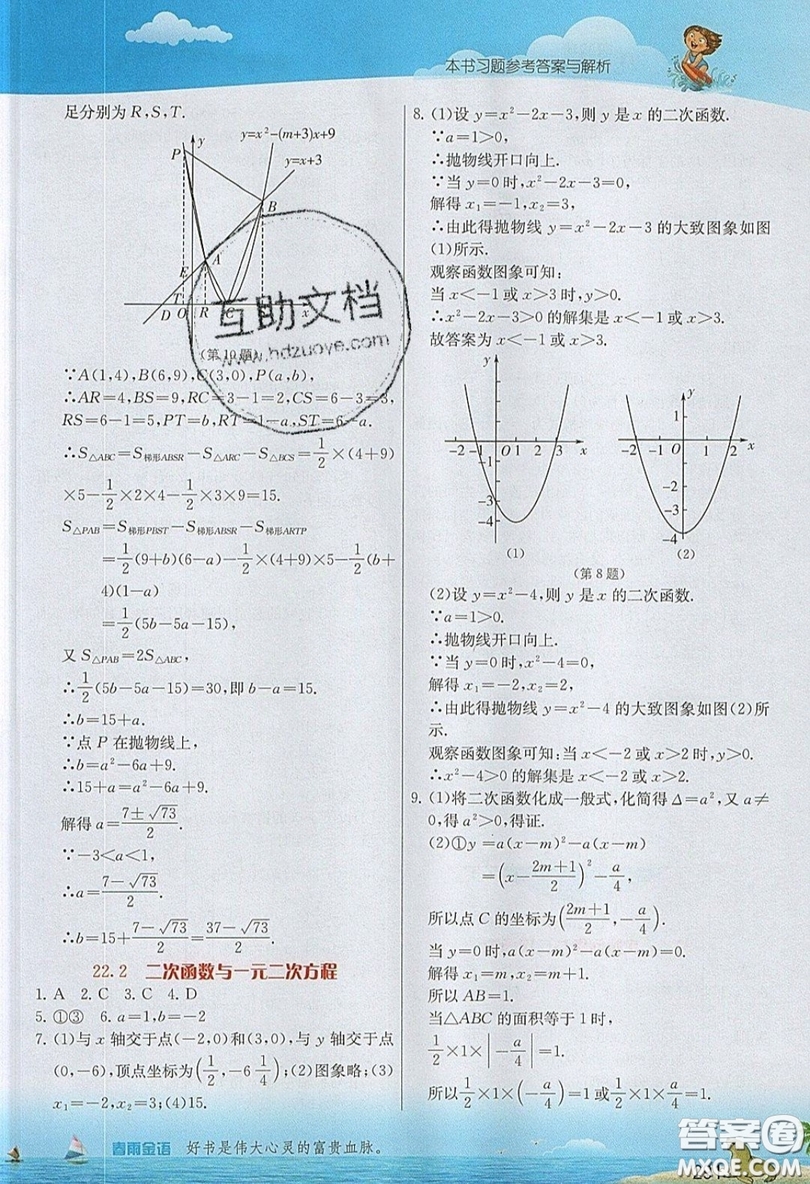 本书习题参考答案与解析
足分别为 R,S,T.
y
y=x²-(m+3)x+9
P
y=x+3
B
A
E
T
D O R C x
(第 10 题)
互助文档
www.hdzuoye.com
∵A(1,4),B(6,9),C(3,0),P(a,b),
∴AR=4,BS=9,RC=3-1=2,CS=6-3=3,
RS=6-1=5,PT=b,RT=1-a,ST=6-a.
∴S△ABC=S梯形ABSR-S△ARC-S△BCS=1/2×(4+9)
×5-1/2×2×4-1/2×3×9=15.
S△PAB=S梯形PBST-S梯形ABSR-S梯形ARTP
=1/2(9+b)(6-a)-1/2×(4+9)×5-1/2(b+
4)(1-a)
=1/2(5b-5a-15),
又 S△PAB=2S△ABC,
∴1/2(5b-5a-15)=30,即 b-a=15.
∴b=15+a.
∵点 P 在抛物线上,
∴b=a²-6a+9.
∴15+a=a²-6a+9.
解得 a=(7±√73)/2.
∵-3<a<1,
∴a=(7-√73)/2.
∴b=15+(7-√73)/2=(37-√73)/2.
22.2 二次函数与一元二次方程
1. A 2. C 3. C 4. D
5. ①③ 6. a=1,b=-2
7. (1)与 x 轴交于点(-2,0)和(3,0),与 y 轴交于点
(0,-6),顶点坐标为(1/2,-6 1/4);(2)图象略;(3)
x₁=-2,x₂=3;(4)15.
8. (1)设 y=x²-2x-3,则 y 是 x 的二次函数.
∵a=1>0,
∴抛物线开口向上.
∵当 y=0 时,x²-2x-3=0,
解得 x₁=-1,x₂=3,
∴由此得抛物线 y=x²-2x-3 的大致图象如图
(1)所示.
观察函数图象可知:
当 x<-1 或 x>3 时,y>0.
∴x²-2x-3>0 的解集是 x<-1 或 x>3.
故答案为 x<-1 或 x>3.
y
-2 -1 O 1 2 3 x
-1
-3
-4
(1)
y
1
-2 -1 O 1 2 x
-3
-4
(2)
(第 8 题)
(2)设 y=x²-4,则 y 是 x 的二次函数.
∵a=1>0.
∴抛物线开口向上.
∵当 y=0 时,x²-4=0,
解得 x₁=-2,x₂=2,
∴由此得抛物线 y=x²-4 的大致图象如图(2)所
示.
观察函数图象可知:当 x<-2 或 x>2 时,y>0.
∴x²-4>0 的解集是 x<-2 或 x>2.
9. (1)将二次函数化成一般式,化简得 Δ=a²,又 a≠
0,得 a²>0,得证.
(2)①y=a(x-m)²-a(x-m)
=(x-(2m+1)/2)²-a/4,
所以点 C 的坐标为((2m+1)/2,-a/4).
当 y=0 时,a(x-m)²-a(x-m)=0.
解得 x₁=m,x₂=m+1.
所以 AB=1.
当△ABC 的面积等于 1 时,
1/2×1×|-a/4|=1.
所以1/2×1×(-a/4)=1或1/2×1×a/4=1.
春雨金语 好书是伟大心灵的富贵血脉。
答案圈
MXQE.COM